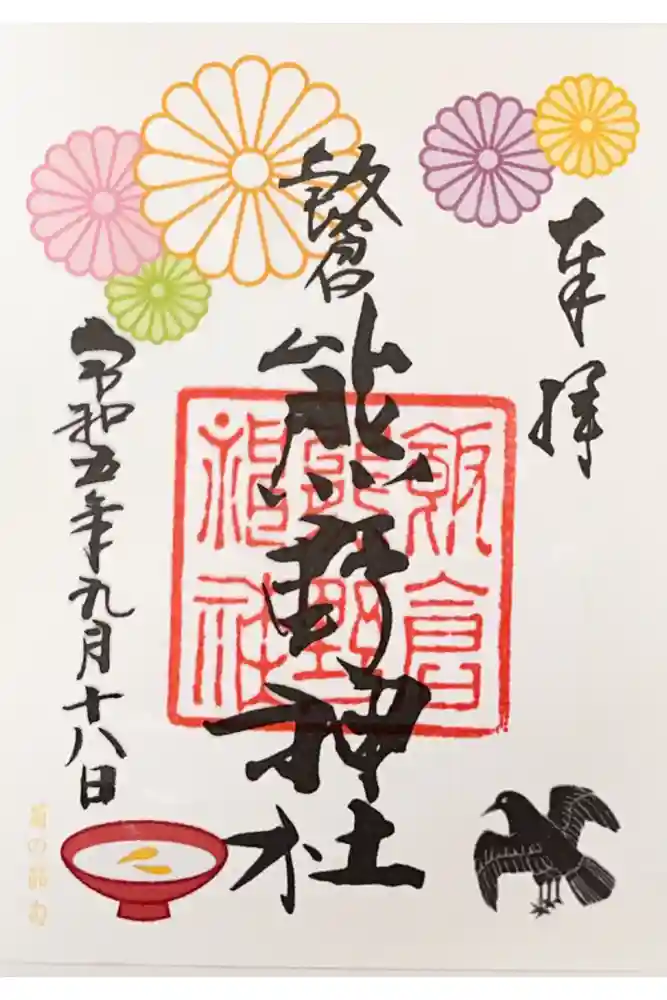 奉拝
飯倉
熊野神社
飯倉
熊野
神社
令和五年九月十八日
菊の節句